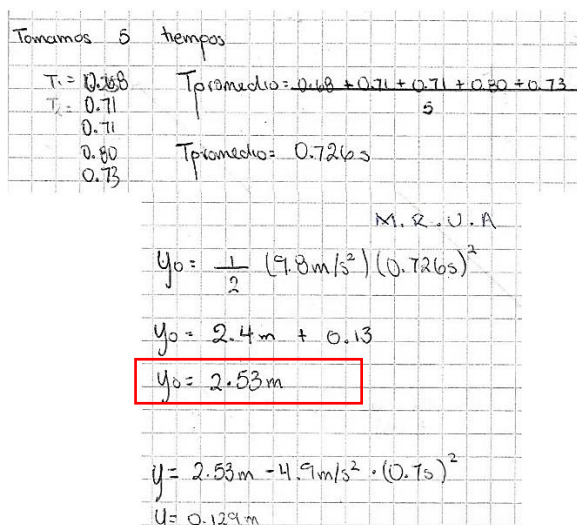 Tomamos 5 tiempos
T₁ = 0.68
T₂ = 0.71
0.71
0.80
0.73
Tpromedio = 0.68 + 0.71 + 0.71 + 0.80 + 0.73
5
Tpromedio = 0.726 s
M.R.U.A
yo = 1/2 (9.8 m/s²) (0.726s)²
yo = 2.4 m + 0.13
yo = 2.53 m
y = 2.53m - 4.9 m/s² · (0.7s)²
y = 0.129 m